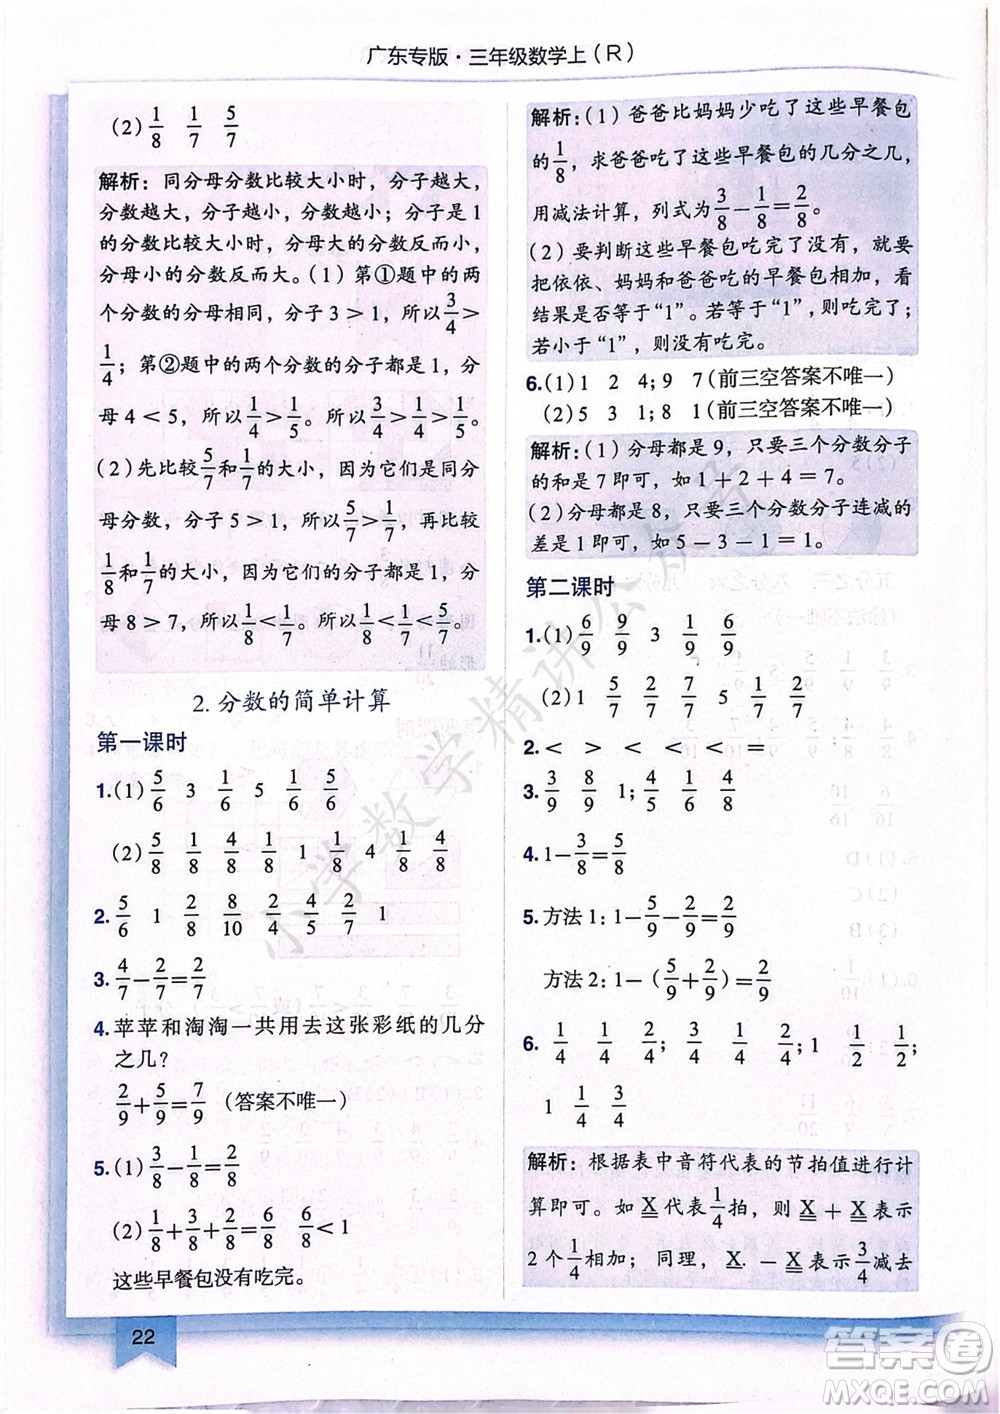 广东专版·三年级数学上(R)
(2) 1/8 1/7 5/7
解析:同分母分数比较大小时,分子越大,
分数越大,分子越小,分数越小;分子是1
的分数比较大小时,分母大的分数反而小,
分母小的分数反而大。(1)第①题中的两
个分数的分母相同,分子3>1,所以3/4>
1/4;第②题中的两个分数的分子都是1,分
母4<5,所以1/4>1/5,所以3/4>1/4>1/5。
(2)先比较5/7和1/7的大小,因为它们是同分
母分数,分子5>1,所以5/7>1/7,再比较
1/8和1/7的大小,因为它们的分子都是1,分
母8>7,所以1/8<1/7,所以1/8<1/7<5/7。
2.分数的简单计算
第一课时
1.(1) 5/6 3 1/6 5 1/6 5/6
(2) 5/8 1/8 4/8 1/8 1 1/8 4 1/8 4/8
2. 5/6 1 2/8 8/10 2/4 4/5 2/7 1
3. 4/7-2/7=2/7
4.苹苹和淘淘一共用去这张彩纸的几分
之几?
2/9+5/9=7/9 (答案不唯一)
5.(1) 3/8-1/8=2/8
(2) 1/8+3/8+2/8=6/8 6/8<1
这些早餐包没有吃完。
解析:(1)爸爸比妈妈少吃了这些早餐包
的1/8,求爸爸吃了这些早餐包的几分之几,
用减法计算,列式为3/8-1/8=2/8。
(2)要判断这些早餐包吃完了没有,就要
把依依、妈妈和爸爸吃的早餐包相加,看
结果是否等于“1”。若等于“1”,则吃完了;
若小于“1”,则没有吃完。
6.(1)1 2 4;9 7(前三空答案不唯一)
(2)5 3 1;8 1(前三空答案不唯一)
解析:(1)分母都是9,只要三个分数分子
的和是7即可,如1+2+4=7。
(2)分母都是8,只要三个分数分子连减的
差是1即可,如5-3-1=1。
第二课时
1.(1) 6/9 9/9 3 1/9 6/9
(2)1 5/7 2/7 7/7 5 1/7 2/7
2.< > < < < =
3. 3/9 8/9 1;4/5 1/6 4/8
4.1-3/8=5/8
5.方法1:1-5/9-2/9=2/9
方法2:1-(5/9+2/9)=2/9
6. 1/4 1/4 2/4;1/4 3/4 2/4;1 1/2 1/2;
1 1/4 3/4
解析:根据表中音符代表的节拍值进行计
算即可。如X代表1/4拍,则X+X表示
2个1/4相加;同理,X.-X表示3/4减去
22
小学数学精讲公众号
答案圈
MXQE.COM